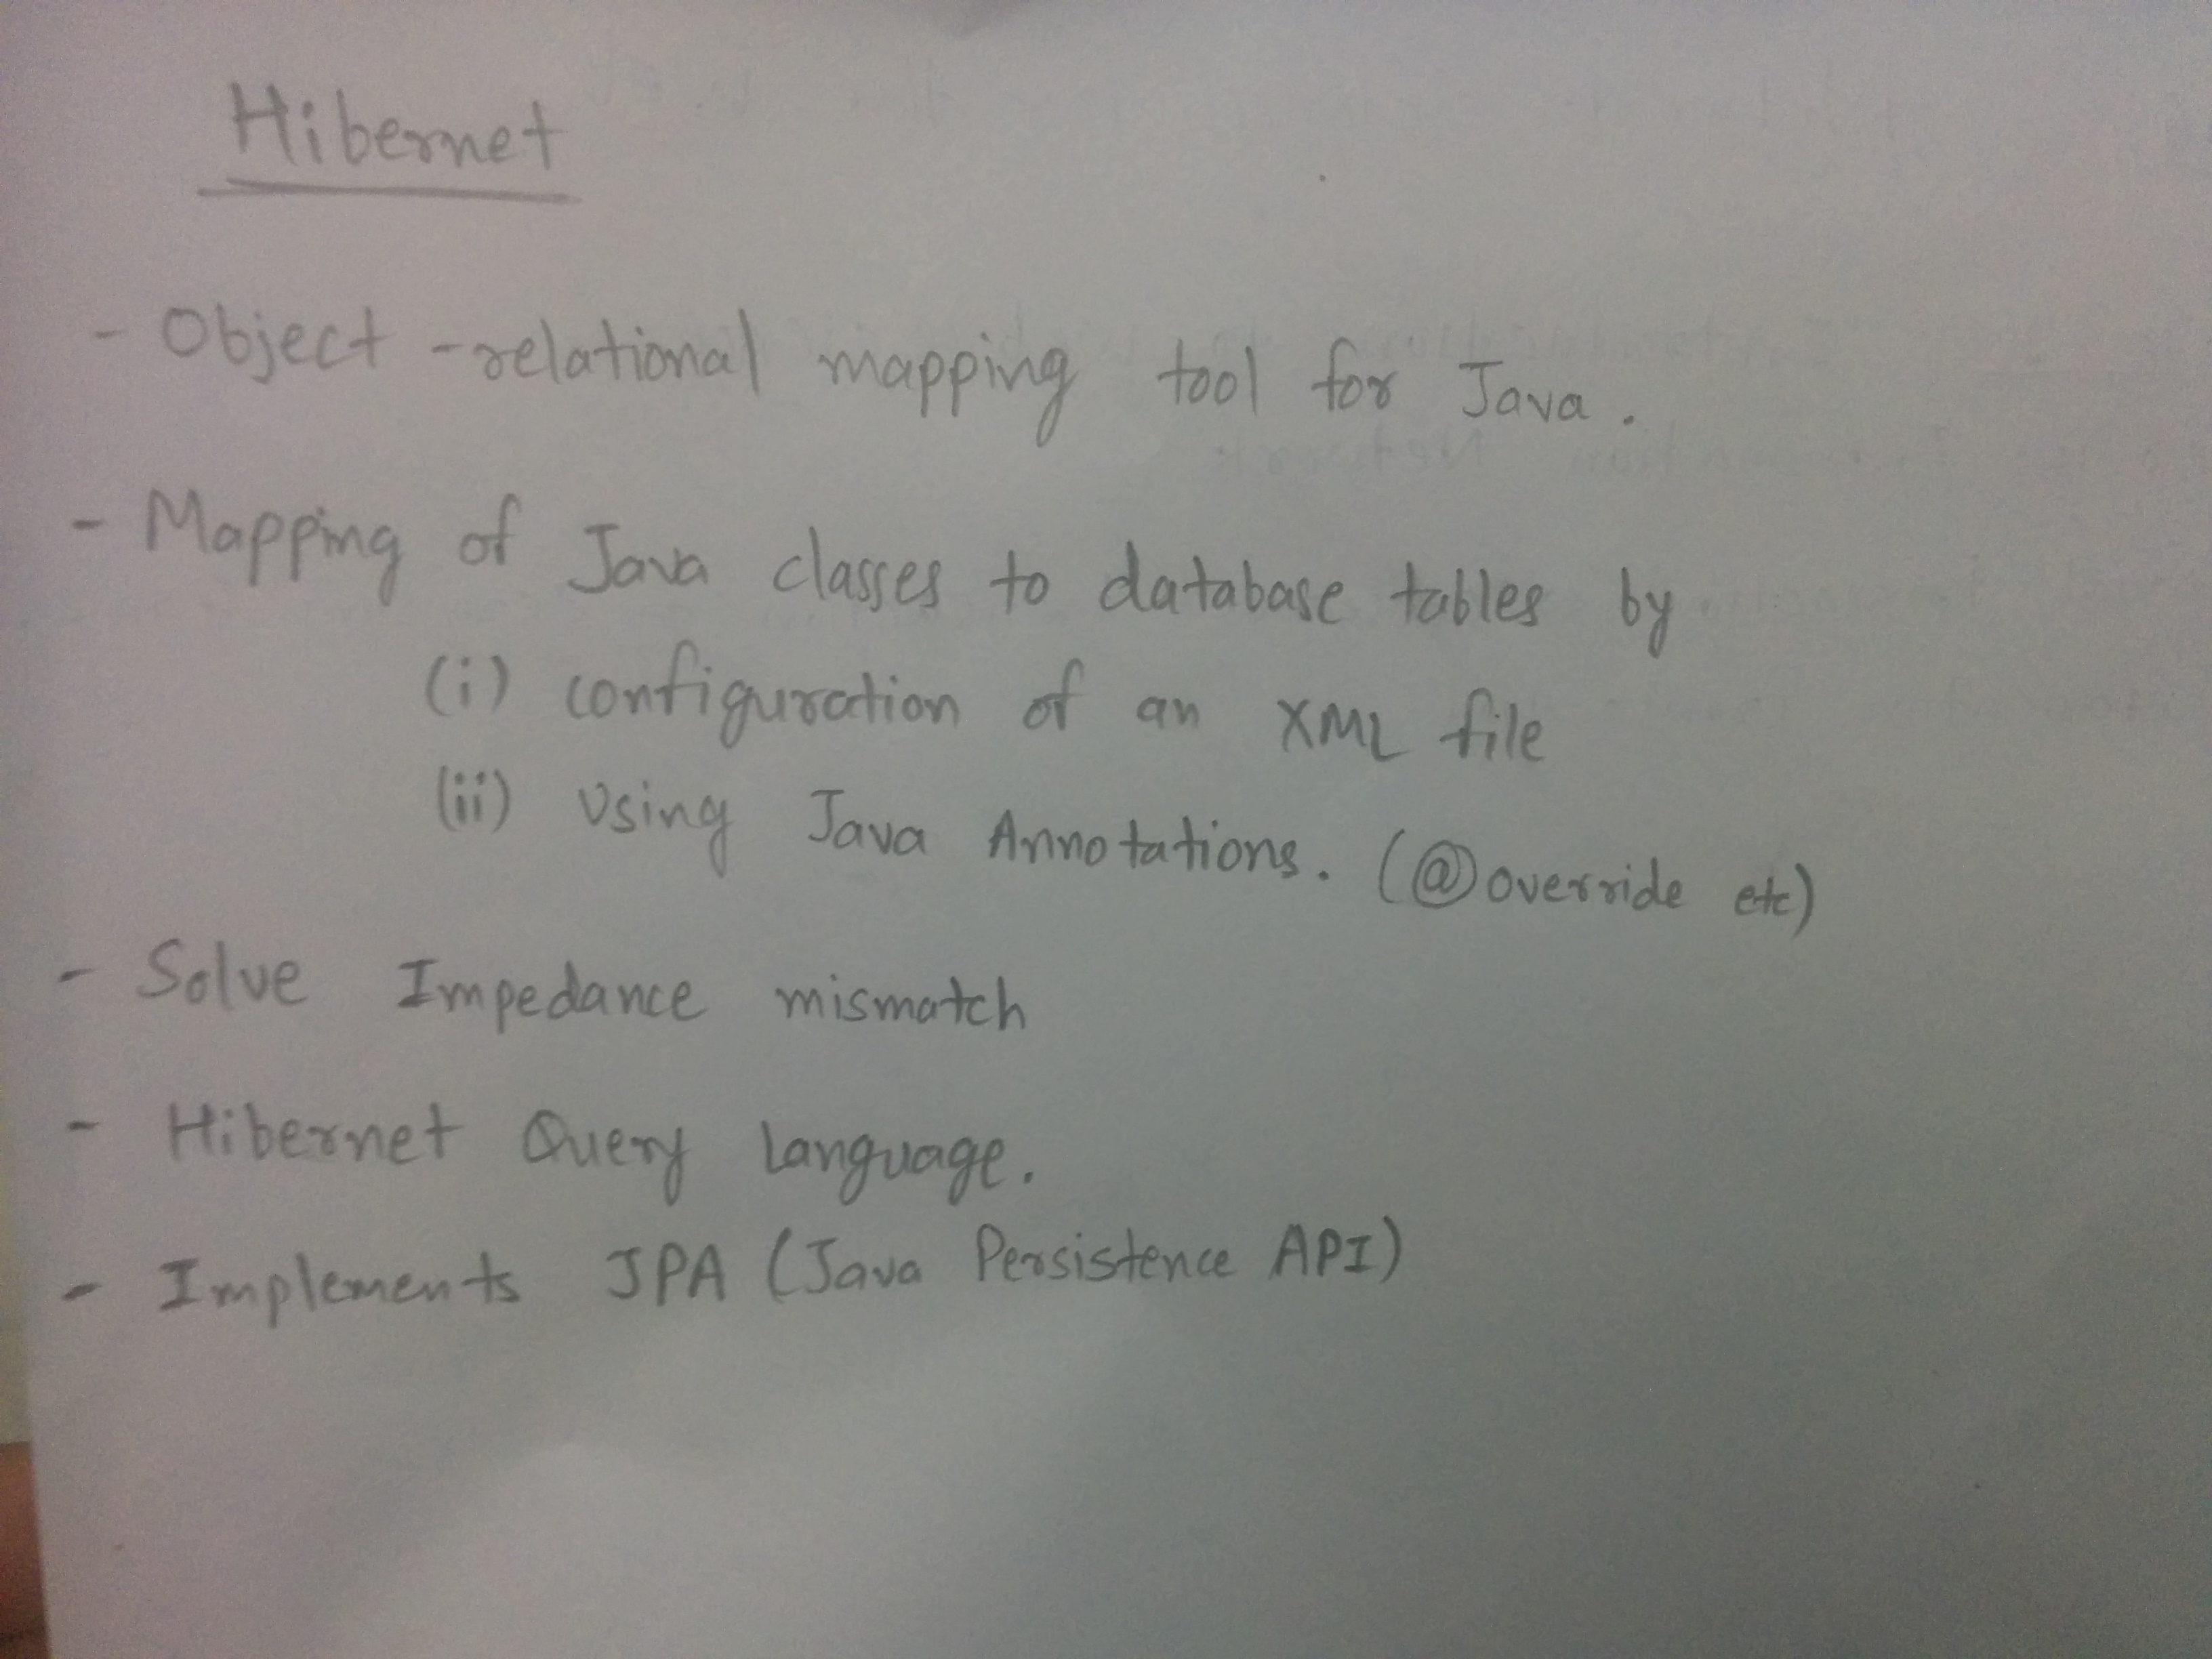 Hibernet
- Object-relational mapping tool for Java.
- Mapping of Java classes to database tables by
(i) configuration of an XML file
(ii) Using Java Annotations. (@override etc)
- Solve Impedance mismatch
- Hibernet Query Language.
- Implements JPA (Java Persistence API)